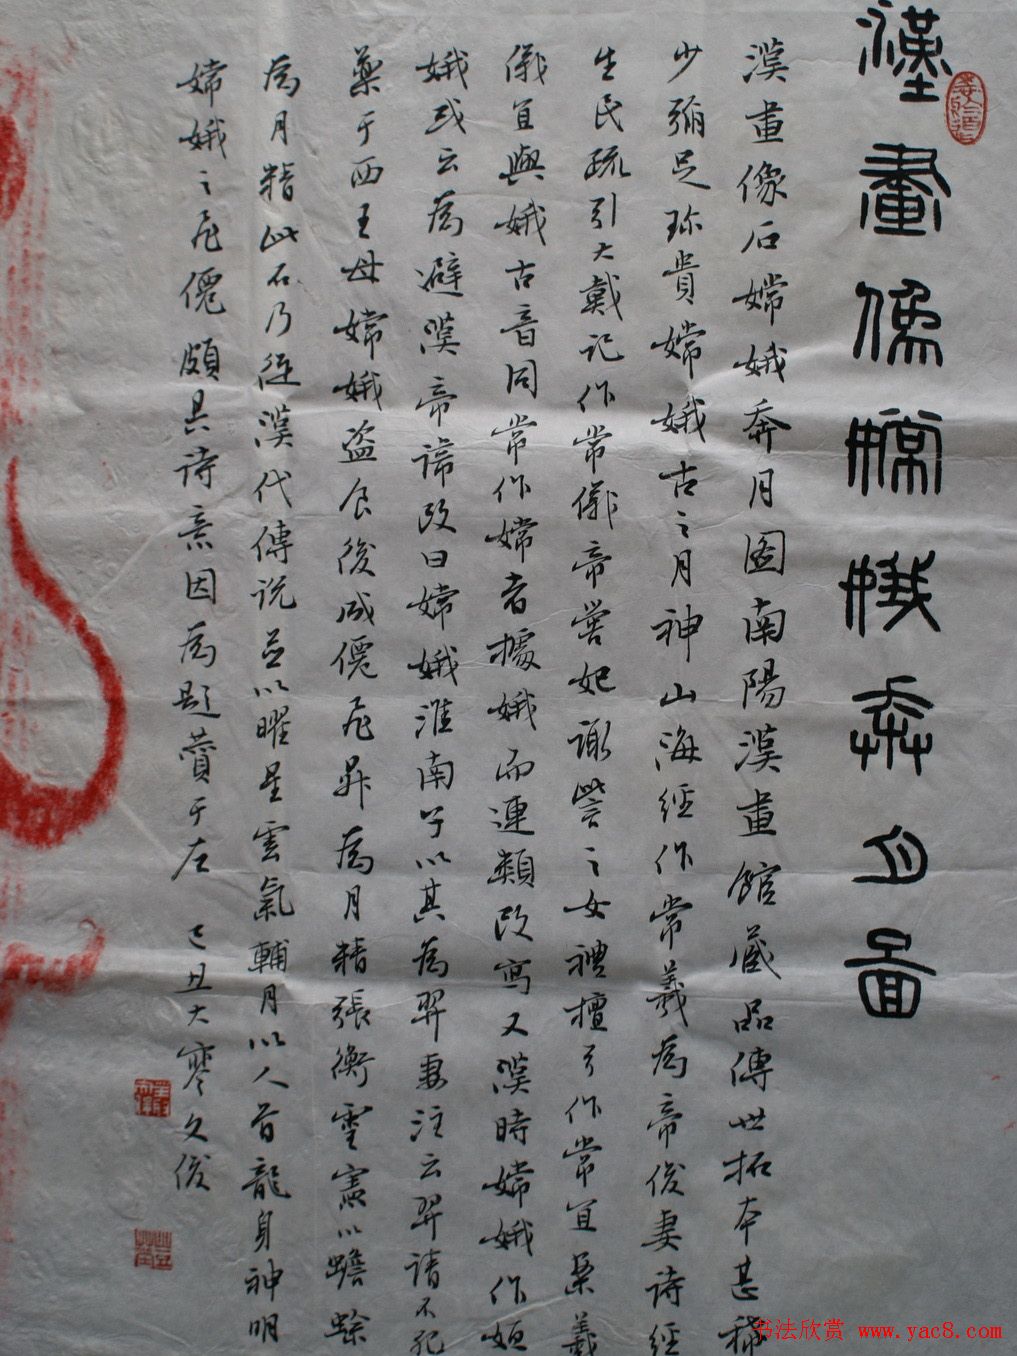 漢畫像嫦娥奔月圖
漢畫像石嫦娥奔月图南陽漢畫館藏品傳世拓本甚稀
少彌足珍貴嫦娥古之月神山海經作常羲為帝俊妻诗經
生民疏引大戴记作常儀帝嚳妃諏訾之女禮檀弓作常宜羲
儀宜與娥古音同常作嫦者據娥而連類改寫又漢時嫦娥作姮
娥或云為避漢帝諱改曰嫦娥淮南子以其為羿妻注云羿请不死
藥于西王母嫦娥盗食後成僊飛昇為月精張衡靈憲以蟾蜍
為月精此石乃從漢代傳说並以曜星雲氣輔月以人首龍身神明
嫦娥之飛僊頗具诗意因為題賛于左 己丑大寒文俊
书法欣赏 www.yac8.com